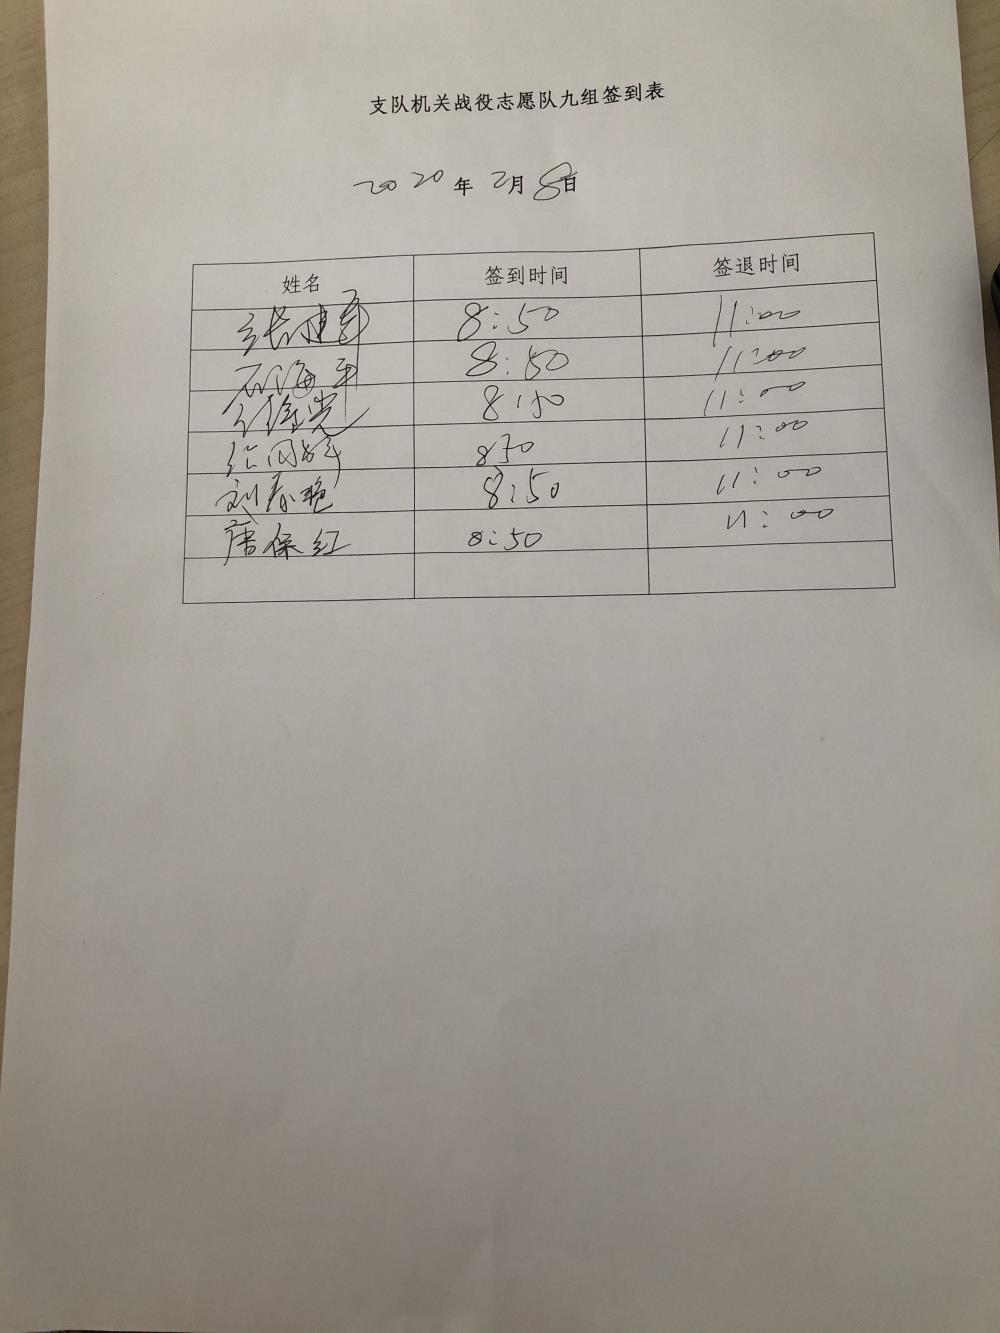 支队机关战役志愿队九组签到表
2020年2月8日
姓名 签到时间 签退时间
张建军 8:50 11:00
石海平 8:50 11:00
8:50 11:00
850 11:00
刘春艳 8:50 11:00
唐保红 8:50 11:00